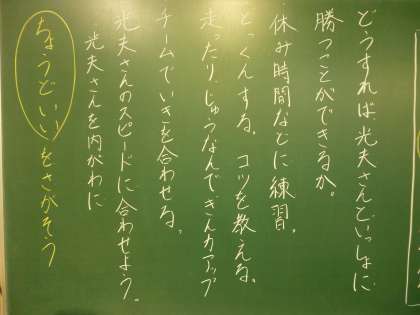 どうすれば光夫さんといっしょに
勝つことができるか。
休み時間などに練習。
とっくんする。コツを教える。
走ったり、じゅうなんで、きん力アップ
チームでいきを合わせる。
光夫さんのスピードに合わせよう。
光夫さんを内がわに
ちょうどいいをさがそう